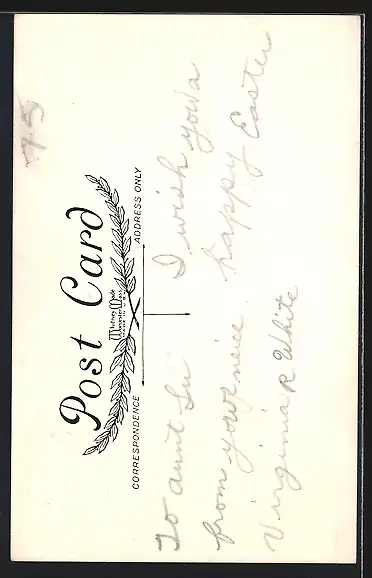 75
Post Card
Whitney Made
Worcester, Mass.
CORRESPONDENCE
ADDRESS ONLY
To aunt Su
from your neice
Virginia R White
I wish you a
happy Easter